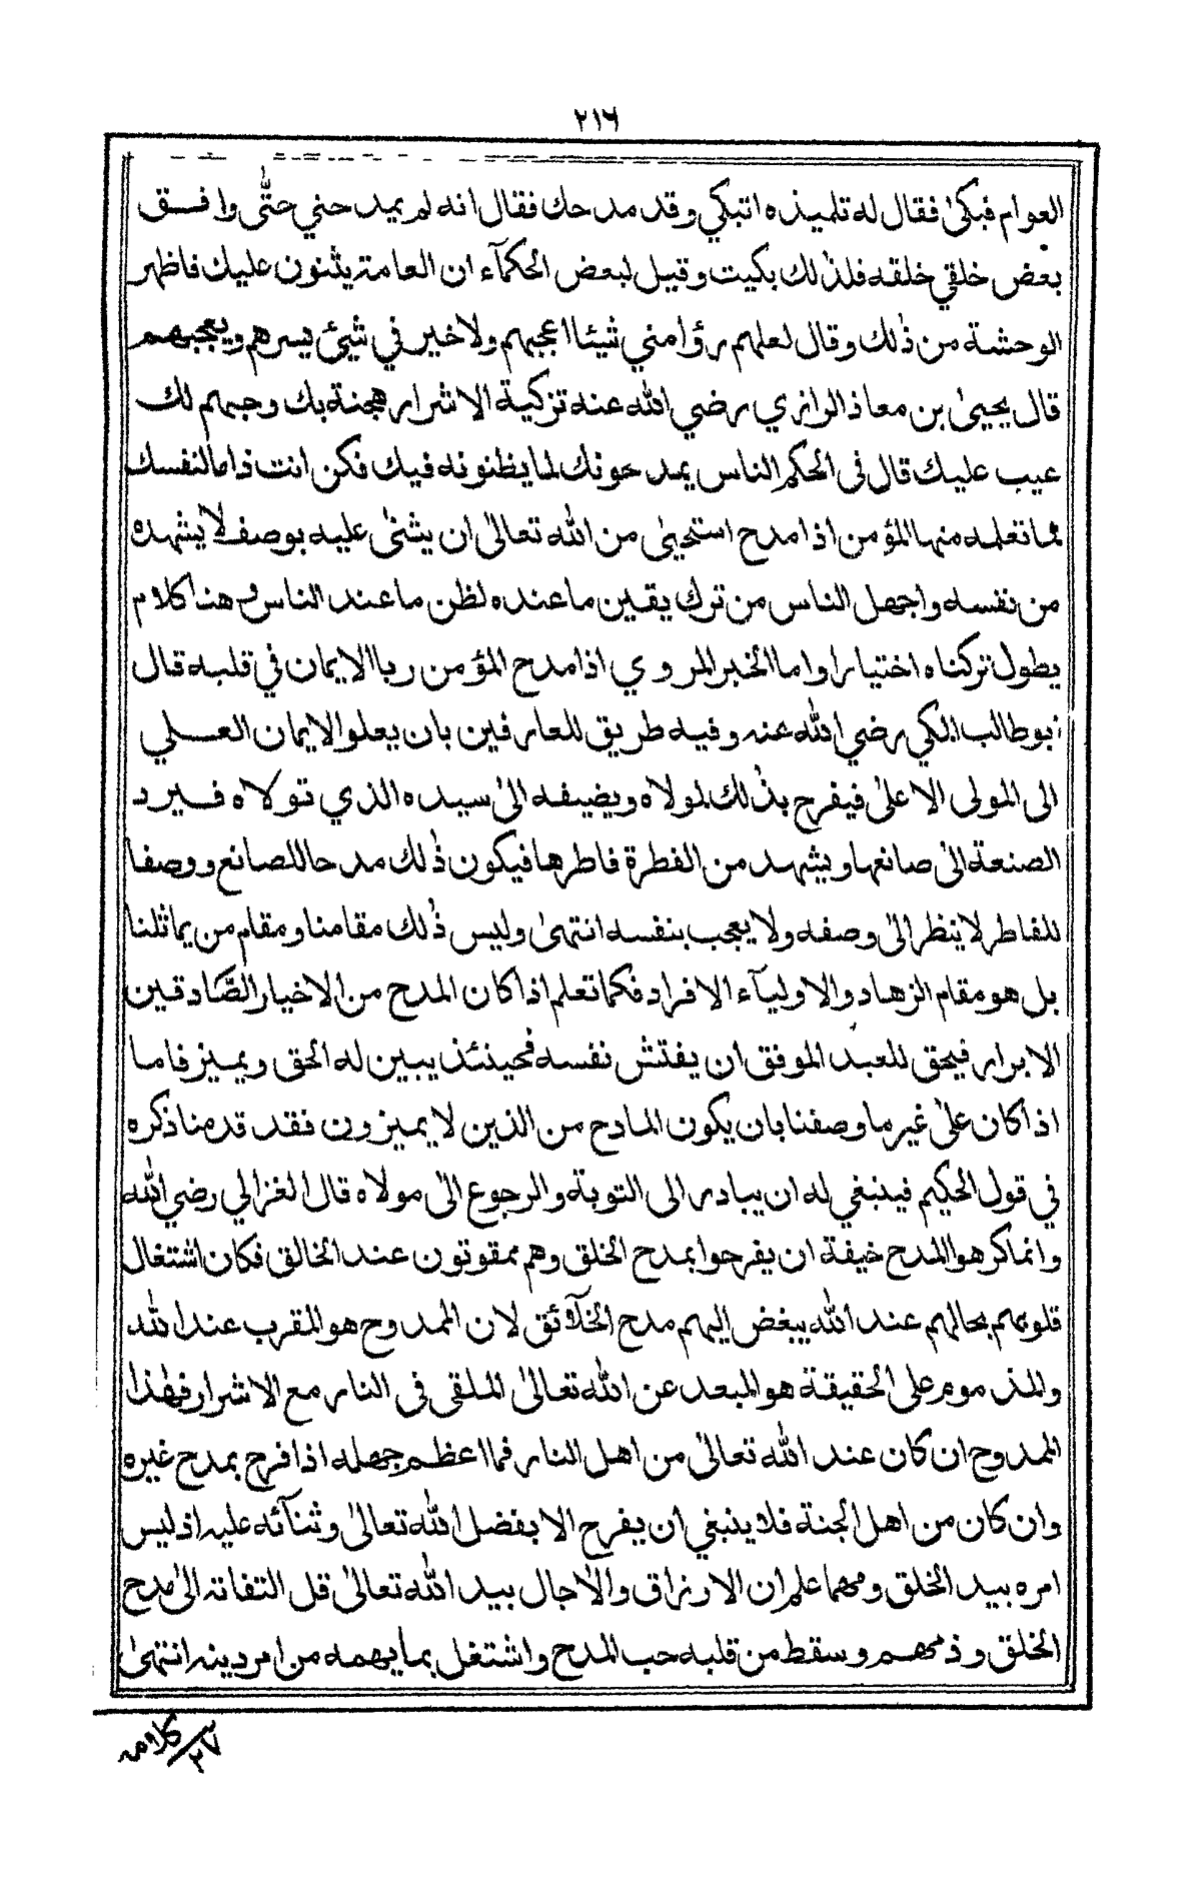 ٢١٦
العوام فبكىٰ فقال له تلميذه اتبكي وقد مدحك فقال انه لم يمدحني حتّى وافـق
بعض خلقي خلقه فلذٰلك بكيت وقيل لبعض الحكمآء ان العامة يثنون عليك فاظهر
الوحشة من ذٰلك وقال لعلهم رؤا مني شيئا اعجبهم ولا خير في شيئ يسرهم ويعجبهم
قال يحيىٰ بن معاذ الرازي رضي الله عنه تزكية الاشرار هجنة بك وحبهم لك
عيب عليك قال فى الحكم الناس يمدحونك لما يظنونه فيك فكن انت ذاما لنفسك
لما تعلمه منها المؤمن اذا مدح استحيىٰ من الله تعالىٰ ان يثنىٰ عليه بوصف لا يشهده
من نفسه واجهل الناس من ترك يقين ما عنده لظن ما عند الناس وهنا كلام
يطول تركناه اختيارا واما الخبر المروي اذا مدح المؤمن ربا الايمان في قلبه قال
ابو طالب المكي رضي الله عنه وفيه طريق للعارفين بان يعلو الايمان العـلي
الى المولى الاعلىٰ فيفرح بذٰلك لمولاه ويضيفه الىٰ سيده الذي تولاه فـيرد
الصنعة الىٰ صانعها ويشهد من الفطرة فاطرها فيكون ذٰلك مدحا للصانع ووصفا
للفاطر لا ينظر الىٰ وصفه ولا يعجب بنفسه انتهىٰ وليس ذٰلك مقامنا ومقام من يماثلنا
بل هو مقام الزهاد والاوليآء الافراد فكما تعلم اذا كان المدح من الاخيار الصّادقين
الابرار فيحق للعبد الموفق ان يفتش نفسه فحينئذ يبين له الحق ويميز فاما
اذا كان علىٰ غير ما وصفنا بان يكون المادح من الذين لا يميزون فقد قدمنا ذكره
في قول الحكيم فينبغي له ان يبادر الى التوبة والرجوع الىٰ مولاه قال الغزالي رضي الله
وانما كرهوا المدح خيفة ان يفرحوا بمدح الخلق وهم ممقوتون عند الخالق فكان اشتغال
قلوبهم بحالهم عند الله يبغض اليهم مدح الخلآئق لان الممدوح هو المقرب عند الله
والمذموم على الحقيقة هو المبعد عن الله تعالىٰ الملقى فى النار مع الاشرار فهٰذا
الممدوح ان كان عند الله تعالىٰ من اهل النار فما اعظم جهله اذا فرح بمدح غيره
وان كان من اهل الجنة فلا ينبغي ان يفرح الا بفضل الله تعالىٰ وثنآئه عليه اذ ليس
امره بيد الخلق ومهما علم ان الارزاق والاٰجال بيد الله تعالىٰ قل التفاته الىٰ مدح
الخلق وذمهم وسقط من قلبه حب المدح واشتغل بما يهمه من امر دينه انتهىٰ
كلامه
٢٧